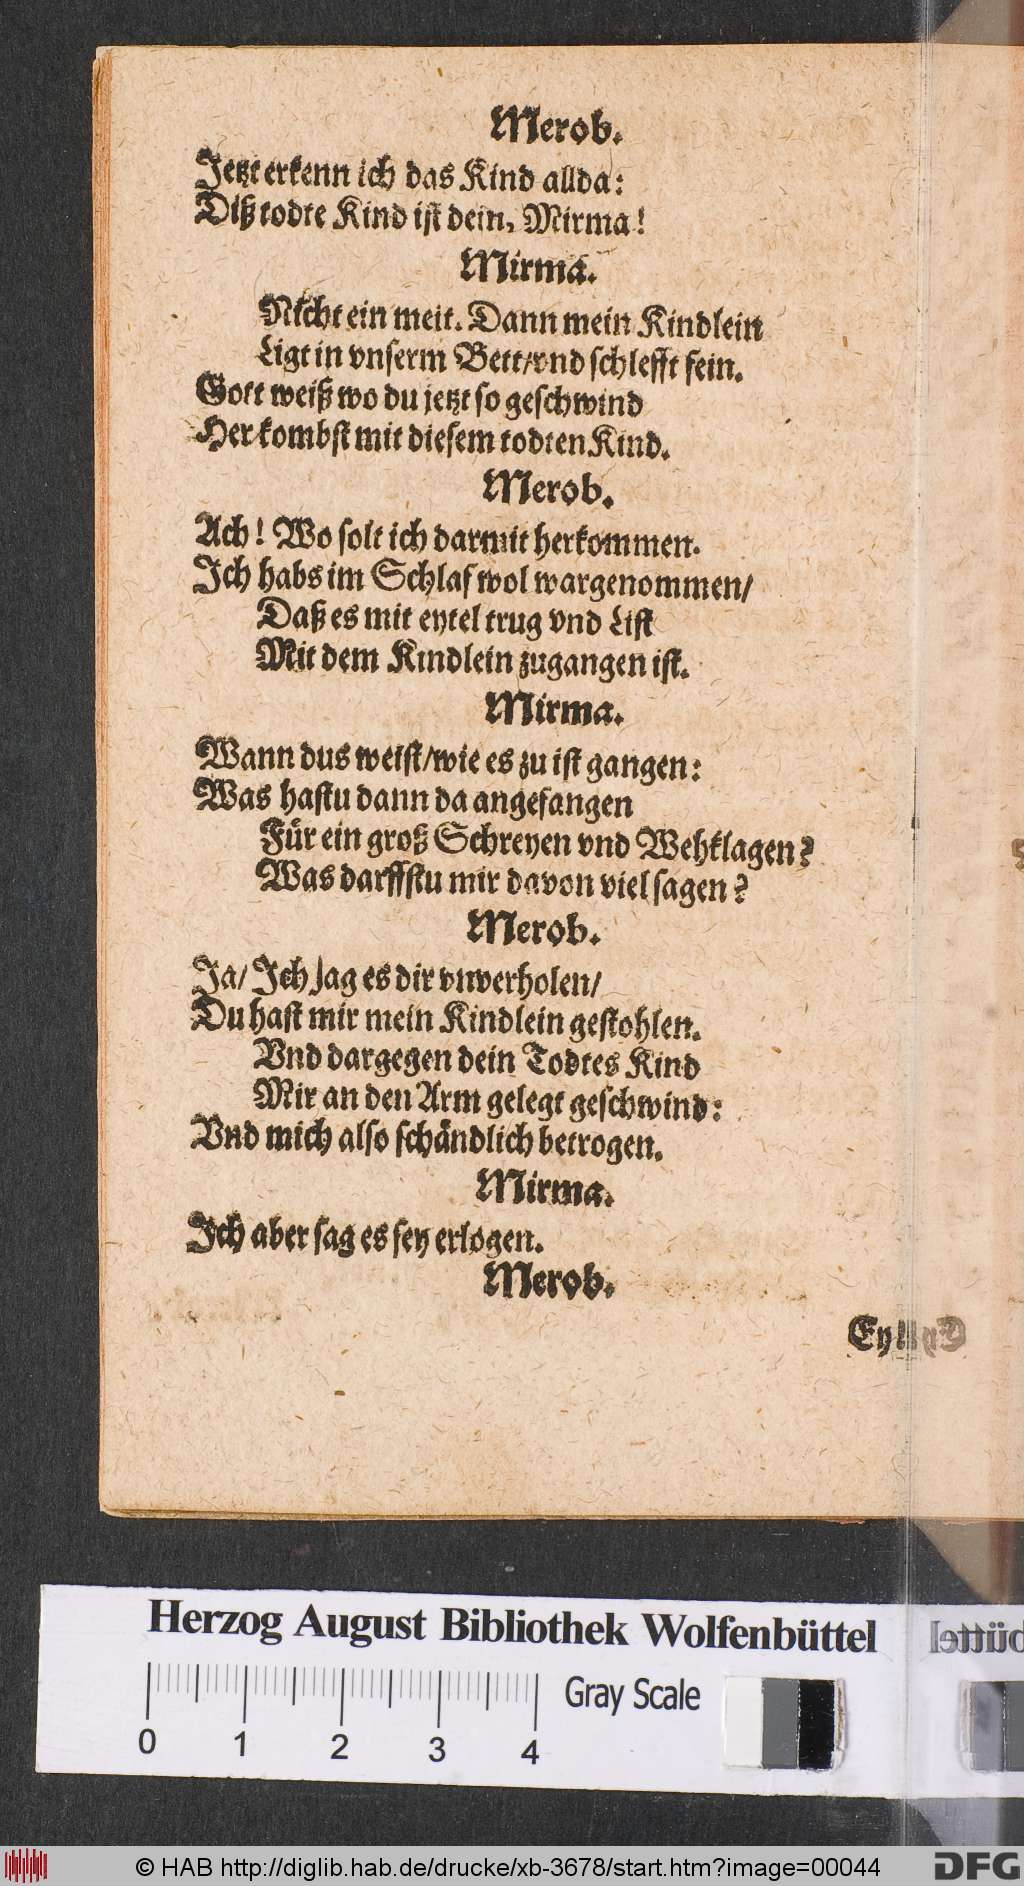 Merob.
Jetzt erkenn ich das Kind allda:
Diß todte Kind ist dein, Mirma!
Mirma.
Nicht ein meit. Dann mein Kindlein
Ligt in vnserm Bett/vnd schlefft fein.
Gott weiß wo du jetzt so geschwind
Her kombst mit diesem todten Kind.
Merob.
Ach! Wo solt ich darmit herkommen.
Ich habs im Schlaf wol wargenommen/
Daß es mit eytel trug vnd List
Mit dem Kindlein zugangen ist.
Mirma.
Wann dus weist/wie es zu ist gangen:
Was hastu dann da angefangen
Für ein groß Schreyen vnd Wehklagen?
Was darffstu mir davon viel sagen?
Merob.
Ja/ Ich sag es dir vnverholen/
Du hast mir mein Kindlein gestohlen.
Vnd dargegen dein Todtes Kind
Mir an den Arm gelegt geschwind:
Vnd mich also schändlich betrogen.
Mirma.
Ich aber sag es sey erlogen.
Merob.
Herzog August Bibliothek Wolfenbüttel
0 1 2 3 4
Gray Scale
© HAB http://diglib.hab.de/drucke/xb-3678/start.htm?image=00044
DFG